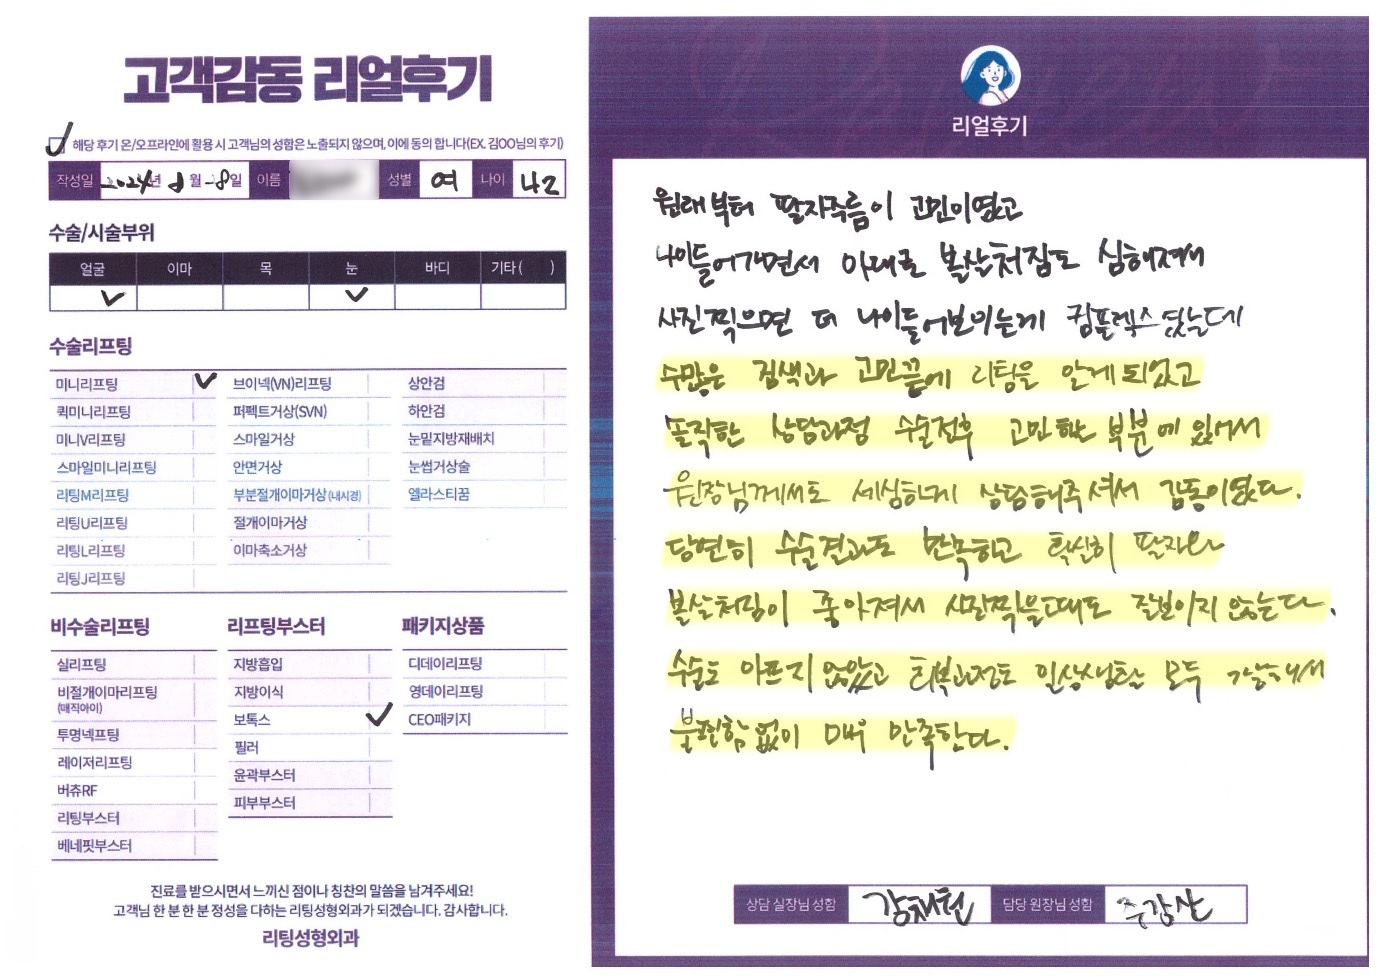 고객감동 리얼후기
해당 후기 온/오프라인에 활용 시 고객님의 성함은 노출되지 않으며, 이에 동의 합니다(EX. 김OO님의 후기)
작성일 2024년 8월 8일 이름 성별 여 나이 42
수술/시술부위
얼굴 이마 목 눈 바디 기타( )
수술리프팅
미니리프팅
퀵미니리프팅
미니V리프팅
스마일미니리프팅
리팅M리프팅
리팅U리프팅
리팅L리프팅
리팅J리프팅
브이넥(VN)리프팅
퍼펙트거상(SVN)
스마일거상
안면거상
부분절개이마거상(내시경)
절개이마거상
이마축소거상
상안검
하안검
눈밑지방재배치
눈썹거상술
엘라스티꿈
비수술리프팅
실리프팅
비절개이마리프팅
(매직아이)
투명넥프팅
레이저리프팅
버츄RF
리팅부스터
베네핏부스터
리프팅부스터
지방흡입
지방이식
보톡스
필러
윤곽부스터
피부부스터
패키지상품
디데이리프팅
영데이리프팅
CEO패키지
진료를 받으시면서 느끼신 점이나 칭찬의 말씀을 남겨주세요!
고객님 한 분 한 분 정성을 다하는 리팅성형외과가 되겠습니다. 감사합니다.
리팅성형외과
리얼후기
원래부터 팔자주름이 고민이였고
나이들어가면서 아래로 볼살처짐도 심해져서
사진찍으면 더 나이들어보이는게 컴플렉스였는데
수많은 검색과 고민끝에 리팅을 알게 되었고
솔직한 상담과정 수술전후 고민하는 부분에 있어서
원장님께서도 세심하게 상담해주셔서 감동이였다.
당연히 수술결과도 만족하고 확실히 팔자와
볼살처짐이 좋아져서 사진찍을때도 신경 쓰이지 않는다.
수술도 아프지 않았고 회복과정도 일상생활 모두 가능해서
불편함 없이 매우 만족한다.
상담 실장님 성함 강채현 담당 원장님 성함